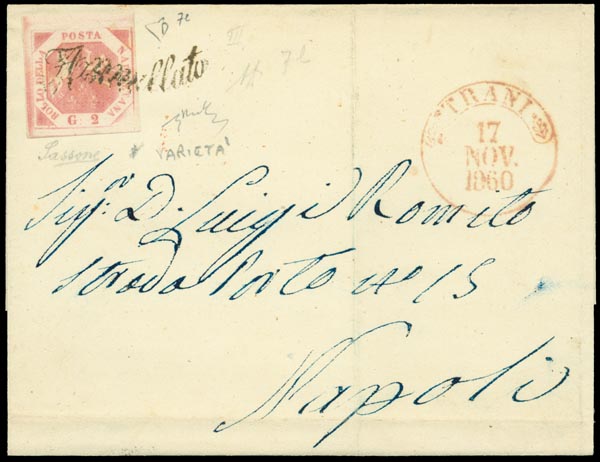 POSTA
NAPOLETANA
BOLLO DELLA
G. 2
Annullato
7e
III
7e
Sassone
* VARIETA'
TRANI
17
NOV.
1960
Sig.n D. Luigi Romito
Strada Porto no 15
Napoli